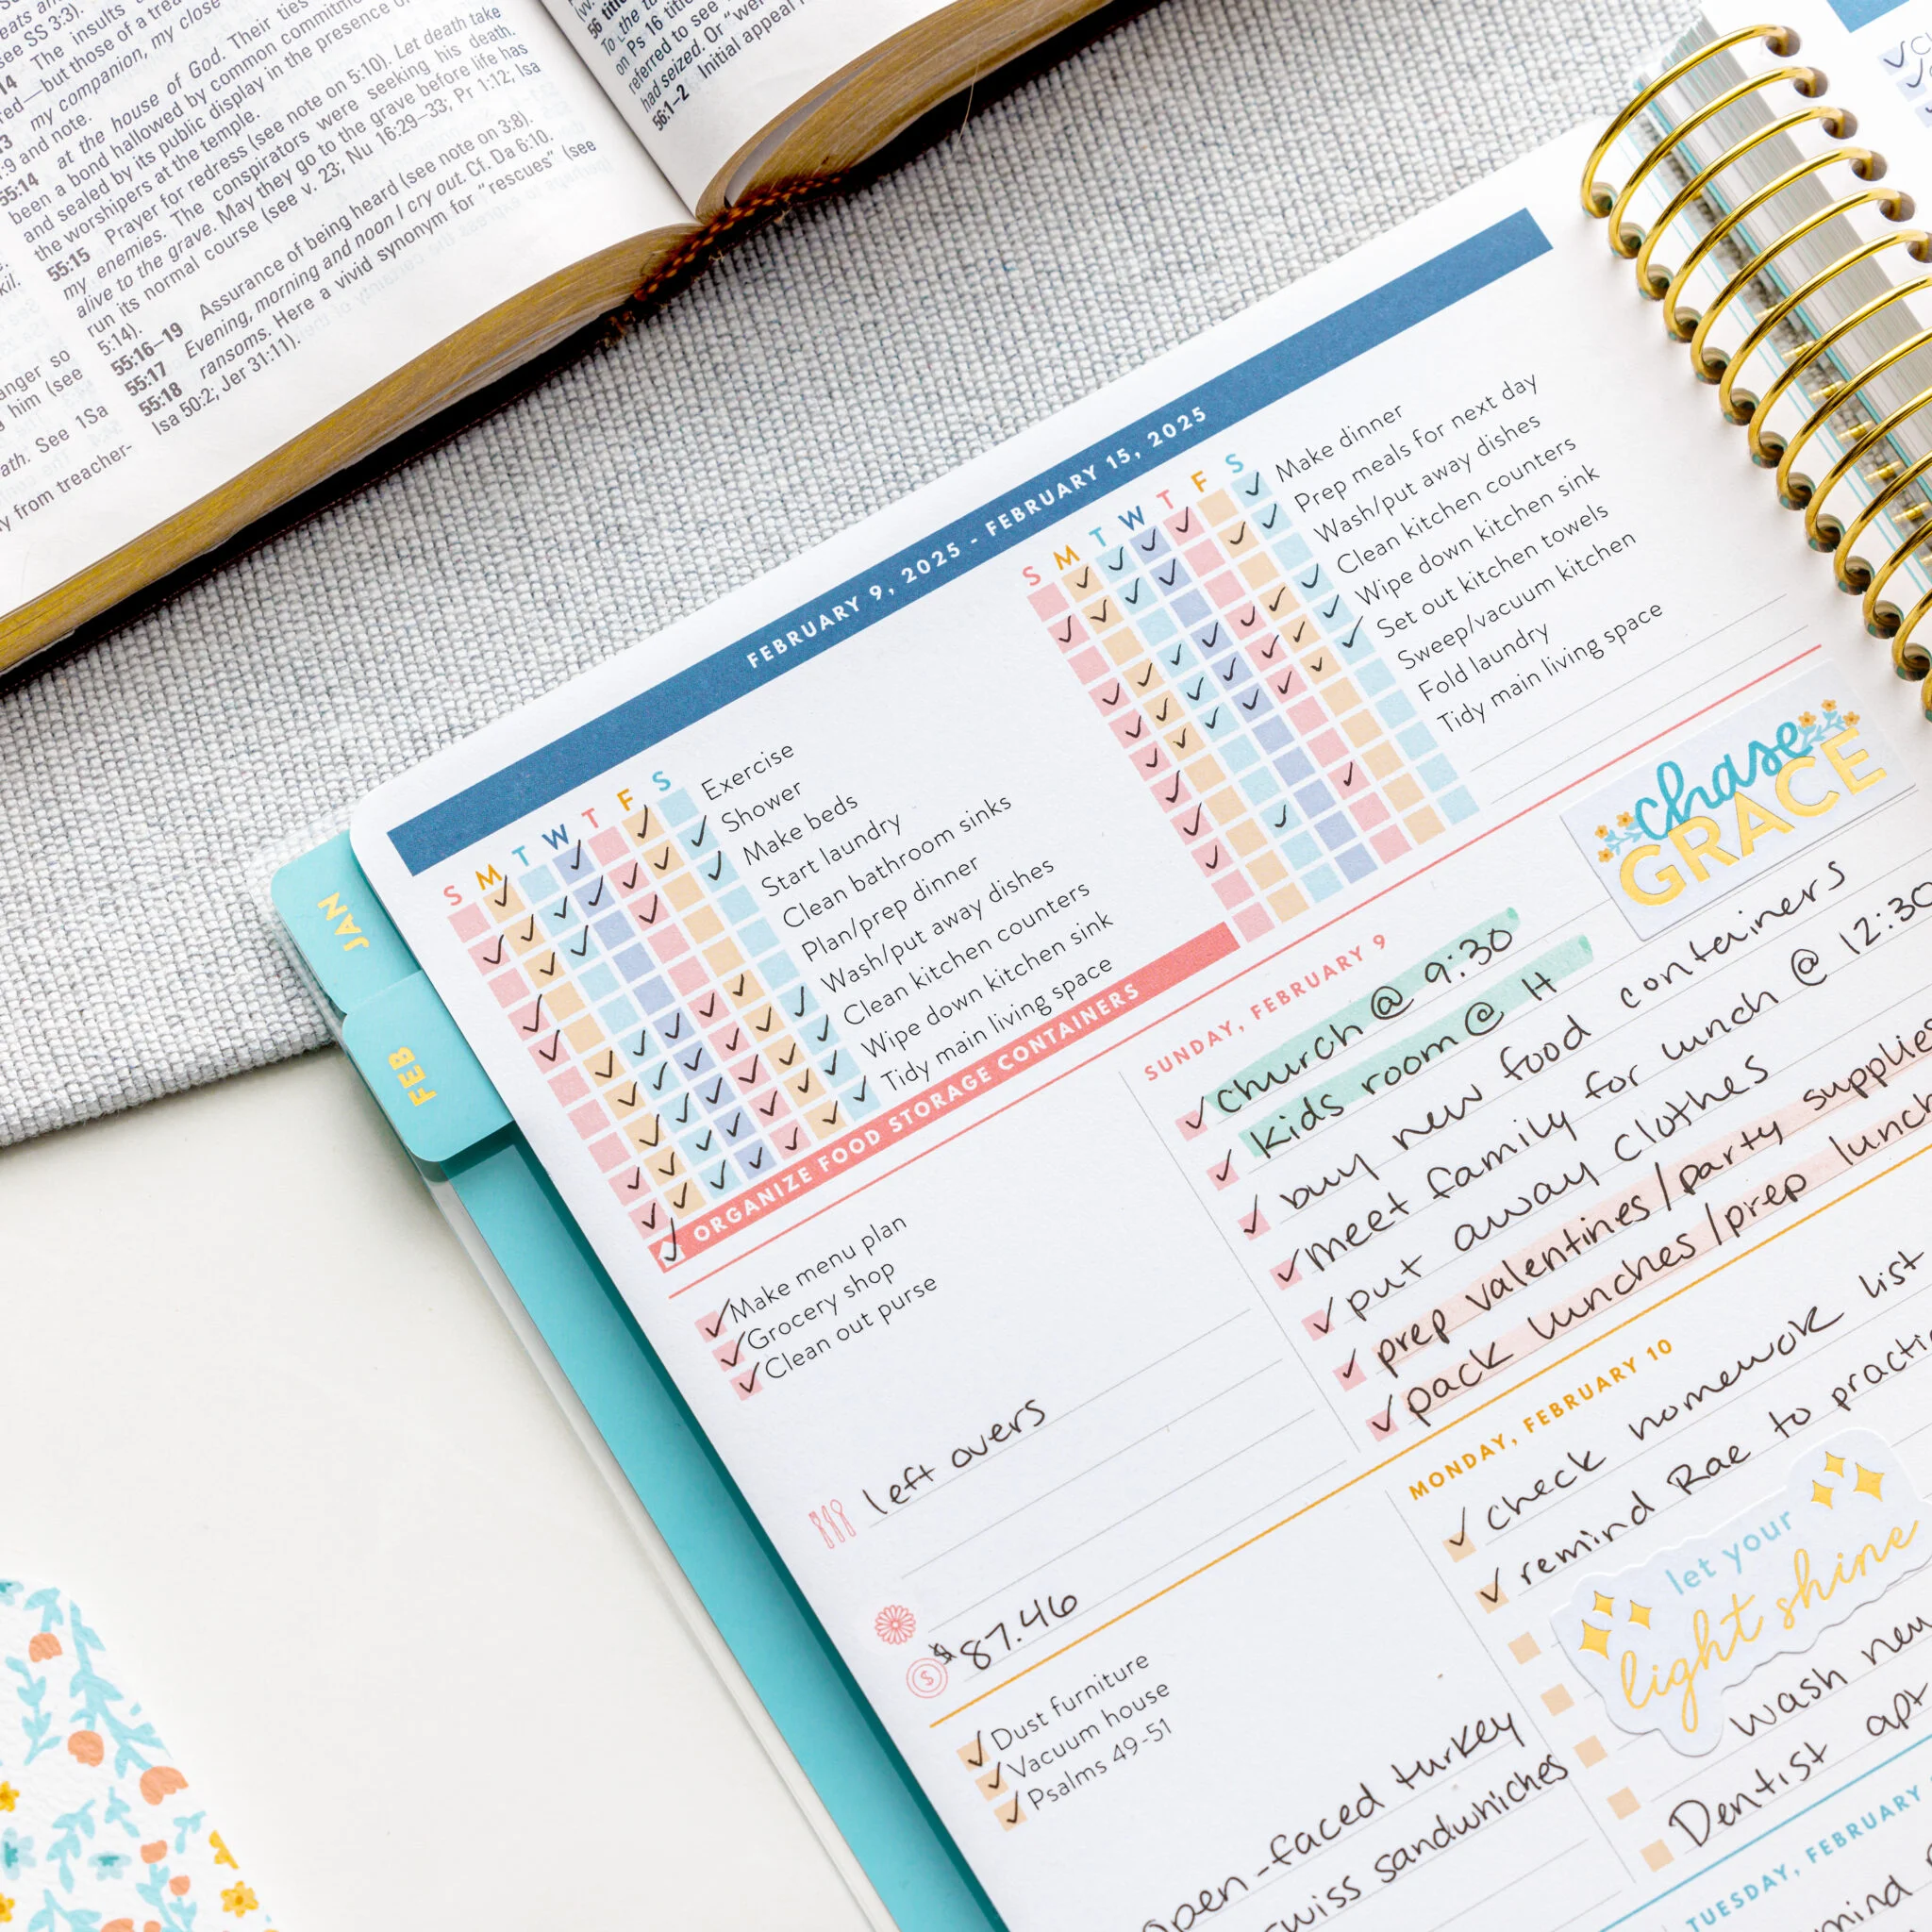 see SS 3:3).
14 The insults
red—but those of a trea
my companion, my close
:9 and note.
55:14 at the house of God. Their ties
been a bond hallowed by common commitme
and sealed by its public display in the presence o
the worshipers at the temple.
55:15 Prayer for redress (see note on 5:10). Let death take
my enemies. The conspirators were seeking his death.
alive to the grave. May they go to the grave before life has
run its normal course (see v. 23; Nu 16:29–33; Pr 1:12; Isa
5:14).
55:16–19 Assurance of being heard (see note on 3:8).
55:17 Evening, morning and noon I cry out. Cf. Da 6:10.
55:18 ransoms. Here a vivid synonym for "rescues" (see
Isa 50:2; Jer 31:11).
anger so
him (see
ath. See 1Sa
y from treacher-
56 title
To the
on Ps 16 title
referred to see
had seized. Or "we
56:1–2 Initial appeal
JAN
FEB
FEBRUARY 9, 2025 - FEBRUARY 15, 2025
S M T W T F S
Exercise
Shower
Make beds
Start laundry
Clean bathroom sinks
Plan/prep dinner
Wash/put away dishes
Clean kitchen counters
Wipe down kitchen sink
Tidy main living space
S M T W T F S
Make dinner
Prep meals for next day
Wash/put away dishes
Clean kitchen counters
Wipe down kitchen sink
Set out kitchen towels
Sweep/vacuum kitchen
Fold laundry
Tidy main living space
ORGANIZE FOOD STORAGE CONTAINERS
Make menu plan
Grocery shop
Clean out purse
left overs
$87.46
chase
GRACE
SUNDAY, FEBRUARY 9
church @ 9:30
kids room @ 11
buy new food containers
meet family for lunch @ 12:30
put away clothes
prep valentines/party supplies
pack lunches/prep lunch
Dust furniture
Vacuum house
Psalms 49-51
open-faced turkey
swiss sandwhiches
MONDAY, FEBRUARY 10
check homewok list
remind Rae to practi
let your
light shine
wash new
Dentist apt
TUESDAY, FEBRUARY
mind